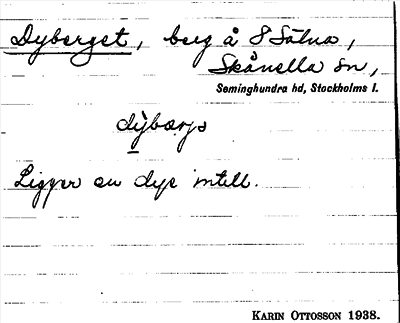 Dyberget, berg å S Sälna,
Skånella sn,
Seminghundra hd, Stockholms l.
dy̆bærjə
Ligger en dye intill.
KARIN OTTOSSON 1938.